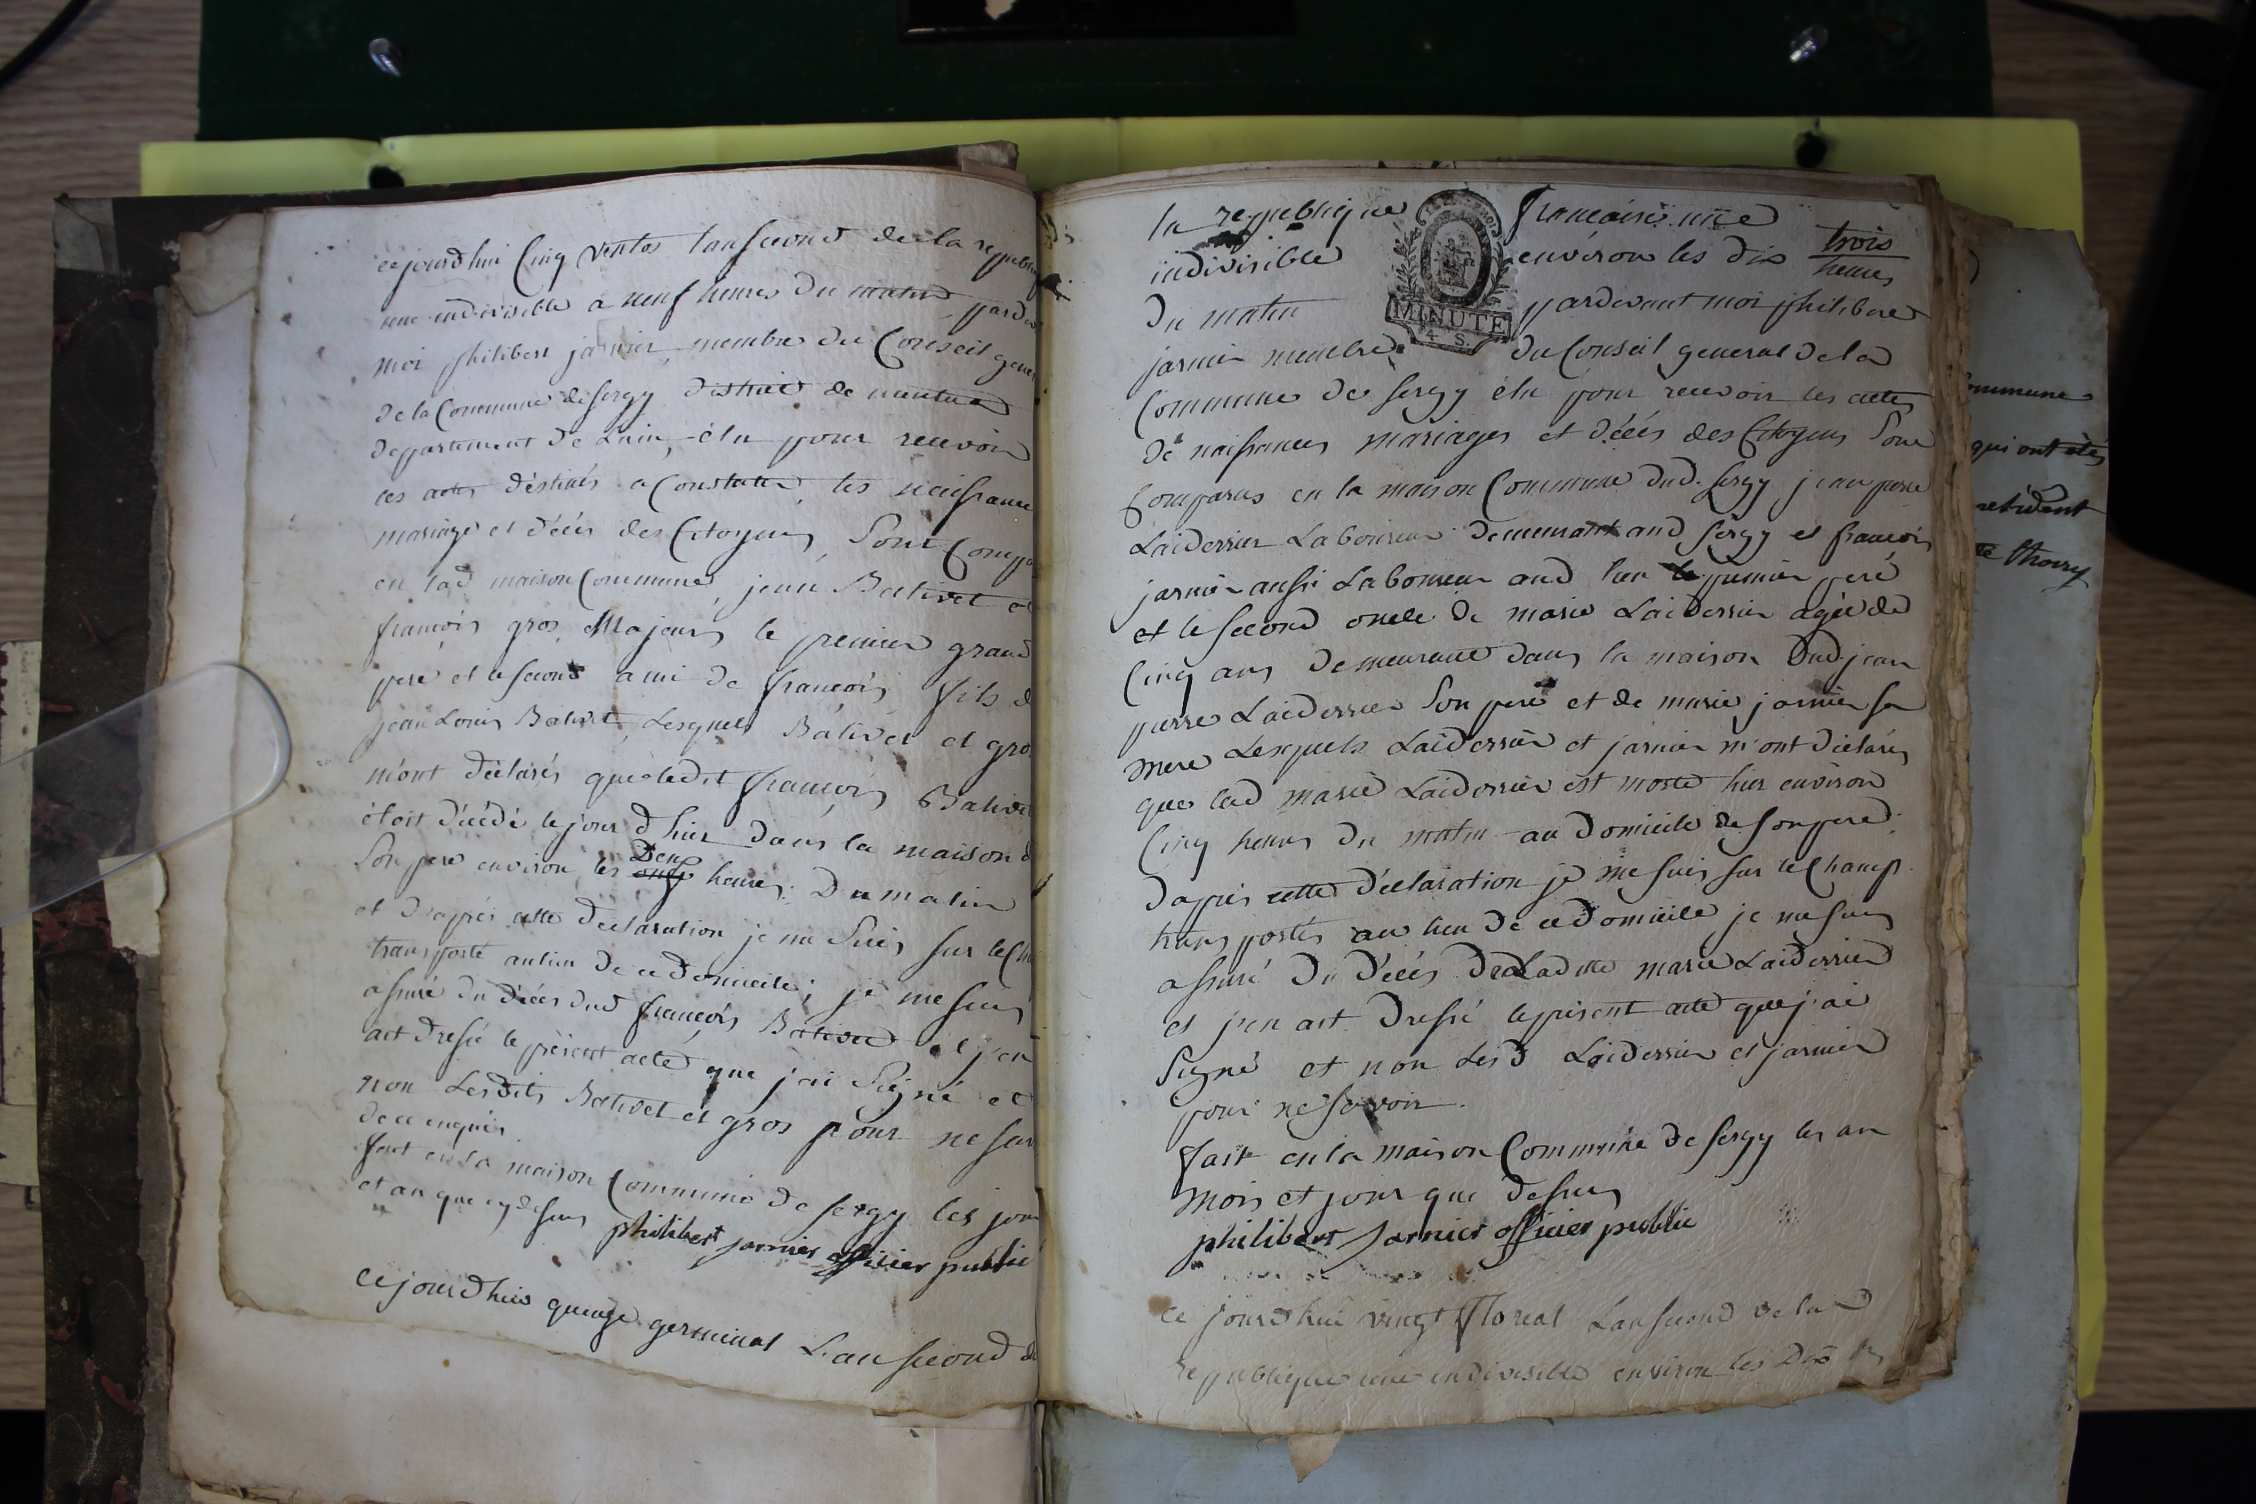 cejourdhui Cinq ventos lan second de la republi
une indivisible a neuf heures du matin pardev
moi philibert jarnier membre du Conseil gene
de la Commune de sergy district de nantua
departement de Lain, élu pour recevoir
les actes déstinés a Constater les naissance
mariage et décés des Citoyens, Sont Compa
en lad maison Commune, jean Balivet et
francois gros Majeurs le premier grand
pere et le second ami de francois fils d
jean Louis Balivet, Lesquels Balivet et gro
m'ont déclarés que ledit francois Balivet
étoit décédé le jour d'hier dans la maison d
Son pere environ les Deux heures Du matin
et d'aprés cette declaration je me suis sur le Ch
transporté au lieu de ce domicile; je me suis
assuré du décés dud francois Balivet et j'en
ait dressé le présent acte que j'ai Signé et
non Lesdits Balivet et gros pour ne sav
de ce enquis
fait en la maison Commune de sergy les jour
et an que cy dessus philibert jarnier officier public
Cejourdhui quenze germinal L'an second de
la republique francaise une
indivisible environ les dix trois
heures
du matin pardevant moi philibert
jarnier membre du Conseil general de la
Commune de sergy élu pour recevoir les actes
de naissances mariages et décés des Citoyens Sont
Comparus en la maison Commune dud. sergy jean pierre
Laiderrier Laboureur demeurant aud sergy et francois
jarnier aussi Laboureur aud lieu le premier peré
et le second oncle de marie Laiderrier agée de
Cinq ans demeurante dans la maison dud. jean
pierre Laiderrier Son peré et de marie jarnier sa
mere Lesquels Laiderrier et jarnier m'ont déclarés
que lad marie Laiderrier est morte hier environ
Cinq heures du matin au domicile de son pere d.
d'aprés cette déclaration je me suis sur le Champ
transportés au lieu de ce domicile je me suis
assuré du décés de Laditte marie Laiderrier
et j'en ait dressé le présent acte que j'ai
Signé et non Lesd Laiderrier et jarnier
pour ne savoir.
fait en la maison Commune de sergy les an
mois et jour que dessus
philibert jarnier officier public
ce jourdhui vingt floreal L'an second de la
republique une indivisible environ les Dix
MINUTE
4 S.
ommune
qui ont étés
résident
thoiry